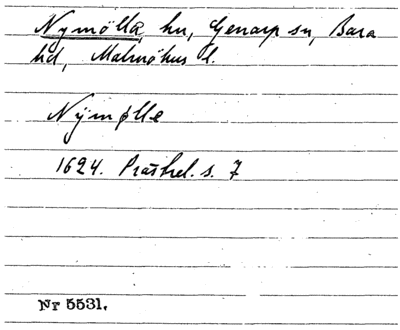 Nymölla, hn, Genarp sn, Bara
hd, Malmöhus l.
Nÿmølle
1624. Prästrel. s. 7
Nr 5531.